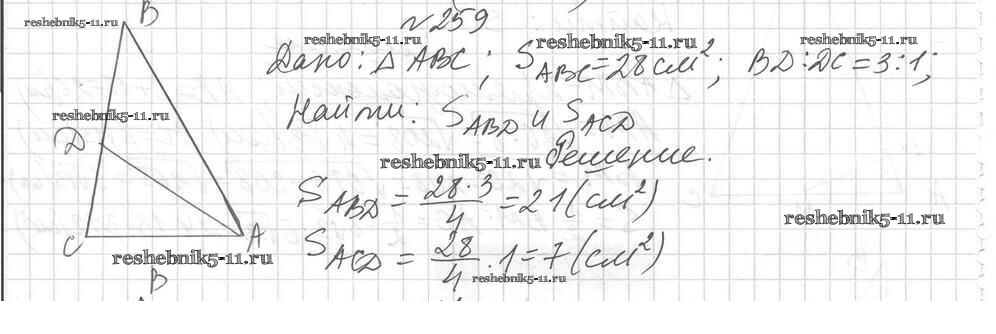 №259
B
reshebnik5-11.ru
reshebnik5-11.ru
reshebnik5-11.ru
Дано: △ABC; S_ABC=28см²; BD:DC=3:1;
reshebnik5-11.ru
Найти: S_ABD и S_ACD
D
reshebnik5-11.ru
Решение.
S_ABD = 28·3/4 = 21(см²)
reshebnik5-11.ru
C
A
S_ACD = 28/4·1=7(см²)
reshebnik5-11.ru
reshebnik5-11.ru
B